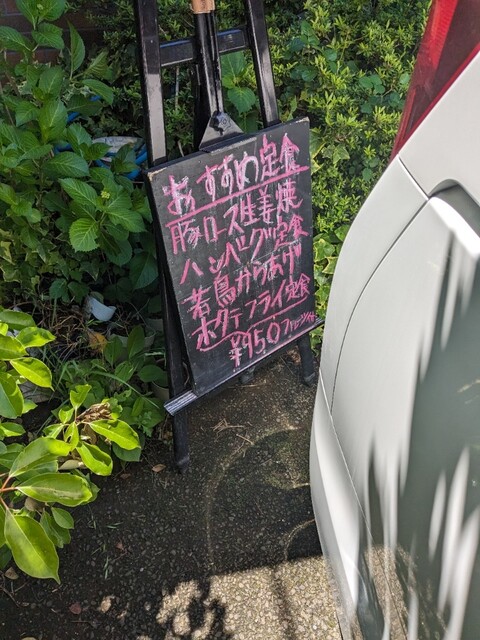 おすすめ定食
豚ロース生姜焼
ハンバーグ定食
若鳥からあげ
ホタテフライ定食
¥950フルーツ付